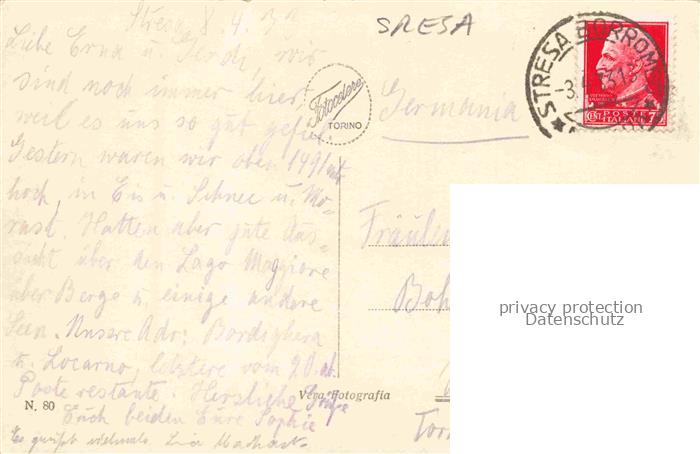 Stresa 8.4.
SRESA
Liebe Erna u. Gerdi, wir
sind noch immer hier
weil es uns so gut gefiel.
Gestern waren wir oben 1491 mtr
hoch, in Eis u. Schnee u. Mo-
rast. Hatten aber gute Aus-
sicht über den Lago Maggiore
über Berge u. einige andere
Seen. Unsere Adr: Bordighera
u. Locarno, letztere vom 20. ab.
Poste restante. Herzliche Grüße
Euch beiden Eure Sophie
Es grüßt vielmals
N. 80
Fotocelere
TORINO
Vera Fotografia
Germania
STRESA BORROM
POSTE
ITALIANE
CENT 75
Fräulein
Boh
Tor
privacy protection
Datenschutz